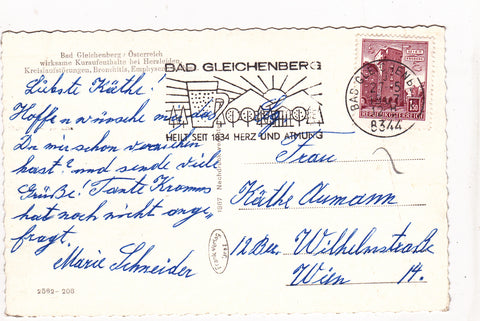 Bad Gleichenberg / Österreich
wirksame Kuraufenthalte bei Herzleiden,
Kreislaufstörungen, Bronchitis, Emphysem
BAD GLEICHENBERG
HEILT SEIT 1834 HERZ UND ATMUNG
BAD GLEICHENBERG
8344
REPUBLIK ÖSTERREICH
1.50
Liebste Käthe!
Hoffe u wünsche mir, daß
Du mir schon verziehen
hast? und sende viele
Grüße! Tante Kromus
hat noch nicht ange=
fragt.
Marie Schneider
Frau
Käthe Aumann
12 Bez. Wilhelmstraße
Wien 14.
2592-208